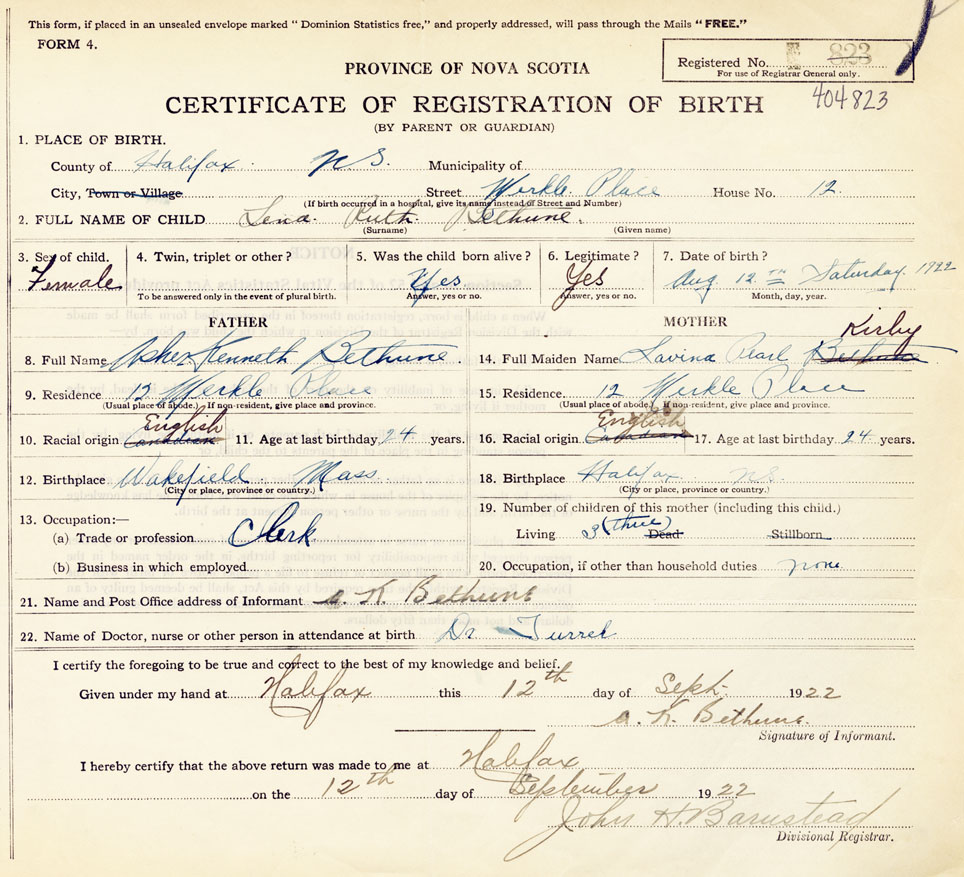 This form, if placed in an unsealed envelope marked "Dominion Statistics free," and properly addressed, will pass through the Mails "FREE."
FORM 4.
Registered No. 823
For use of Registrar General only.
404823
PROVINCE OF NOVA SCOTIA
CERTIFICATE OF REGISTRATION OF BIRTH
(BY PARENT OR GUARDIAN)
1. PLACE OF BIRTH.
County of Halifax N S. Municipality of
City, Town or Village Street Merkle Place House No. 12
(If birth occurred in a hospital, give its name instead of Street and Number)
2. FULL NAME OF CHILD Lena Ruth Bethune.
(Surname) (Given name)
3. Sex of child. Female
4. Twin, triplet or other?
To be answered only in the event of plural birth.
5. Was the child born alive? Yes
Answer, yes or no.
6. Legitimate? Yes
Answer, yes or no.
7. Date of birth? Aug 12TH Saturday. 1922
Month, day, year.
FATHER
8. Full Name Asher Kenneth Bethune.
9. Residence 12 Merkle Place
(Usual place of abode.) If non-resident, give place and province.
10. Racial origin Canadian English 11. Age at last birthday 24 years.
12. Birthplace Wakefield. Mass
(City or place, province or country.)
13. Occupation:—
(a) Trade or profession Clerk
(b) Business in which employed
MOTHER
14. Full Maiden Name Lavina Pearl Bethune Kirby
15. Residence 12 Merkle Place
(Usual place of abode.) If non-resident, give place and province.
16. Racial origin Canadian English 17. Age at last birthday 24 years.
18. Birthplace Halifax NS.
(City or place, province or country.)
19. Number of children of this mother (including this child.)
Living 3 (three) Dead Stillborn
20. Occupation, if other than household duties none
21. Name and Post Office address of Informant A. K. Bethune
22. Name of Doctor, nurse or other person in attendance at birth Dr
I certify the foregoing to be true and correct to the best of my knowledge and belief.
Given under my hand at Halifax this 12th day of Sept. 1922
A. K. Bethune
Signature of Informant.
I hereby certify that the above return was made to me at Halifax
on the 12th day of September 1922
John H. Barnstead
Divisional Registrar.